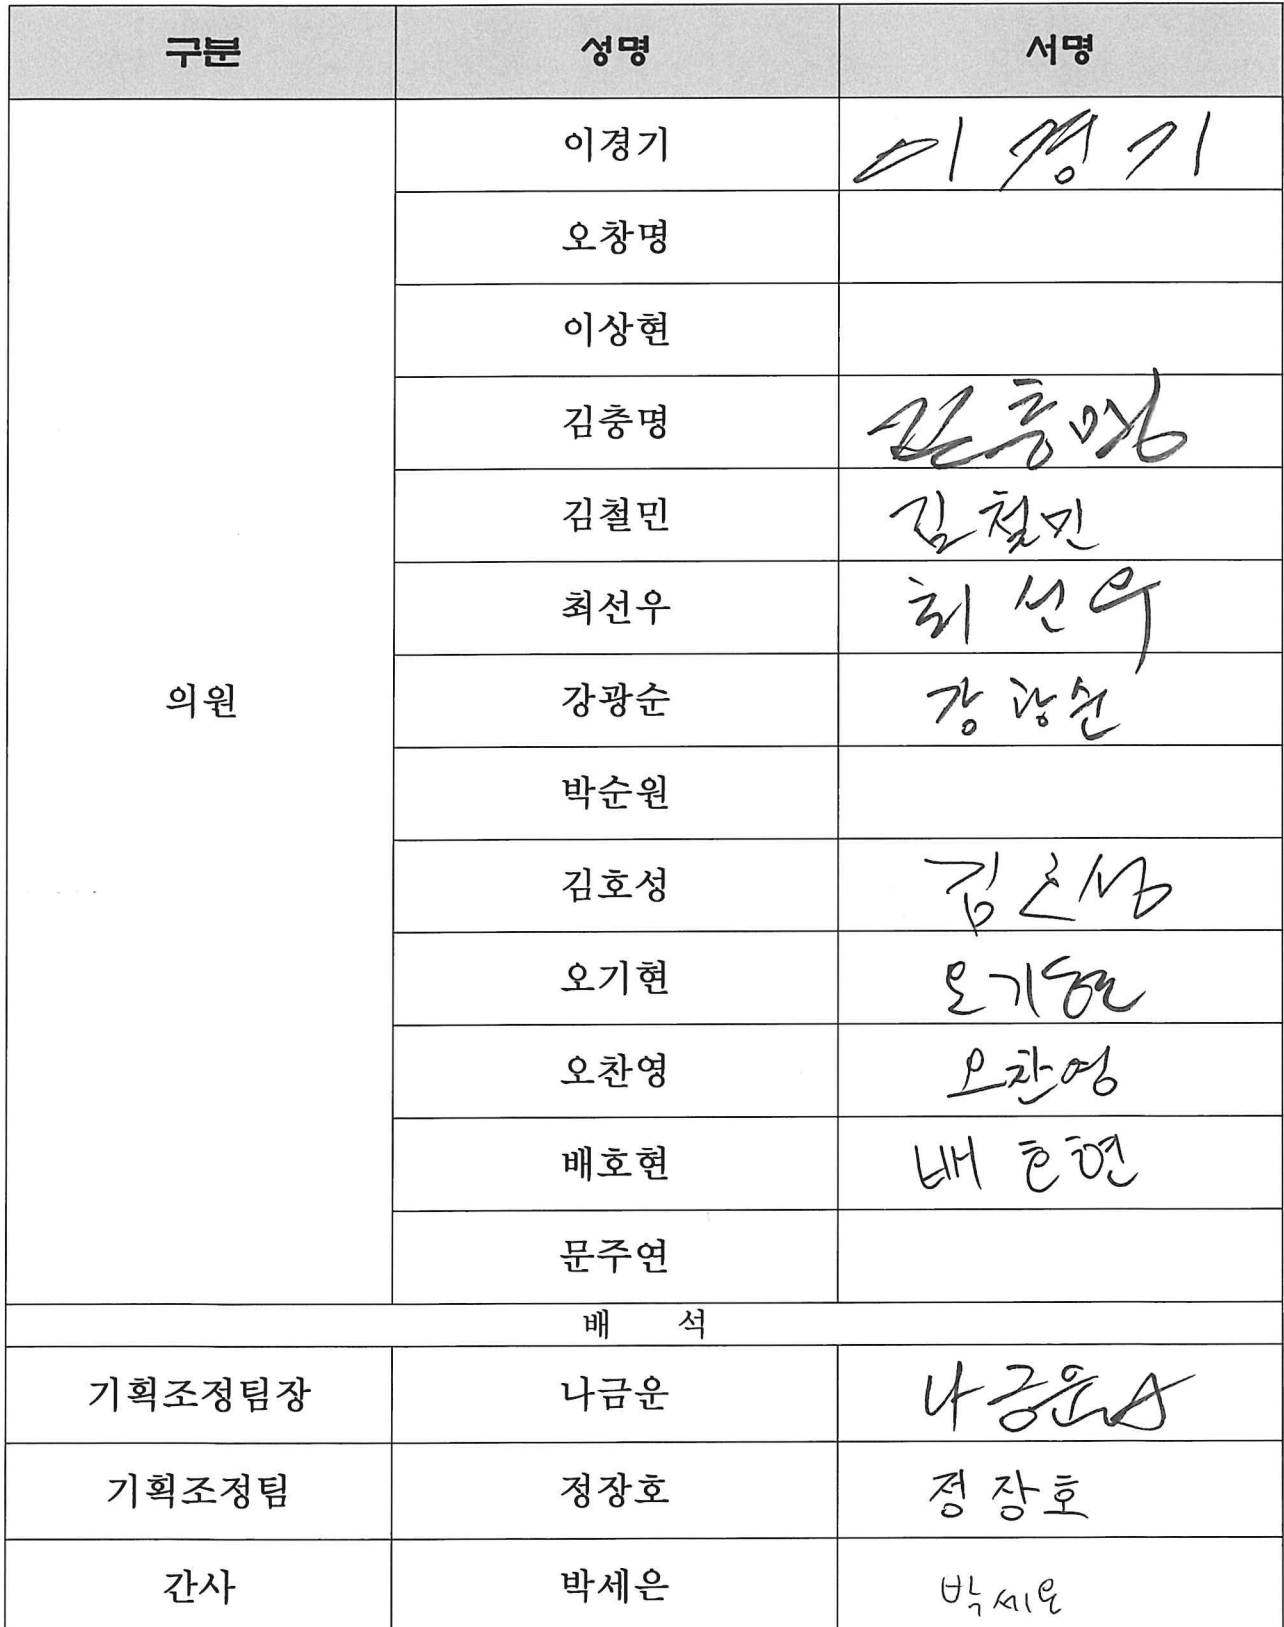 구분 성명 서명
이경기 이경기
오창명
이상현
김충명 김충명
김철민 김철민
최선우 최선우
의원 강광순 강광순
박순원
김호성 김호성
오기현 오기현
오찬영 오찬영
배호현 배호현
문주연
배 석
기획조정팀장 나금운 나금운
기획조정팀 정장호 정장호
간사 박세은 박세은